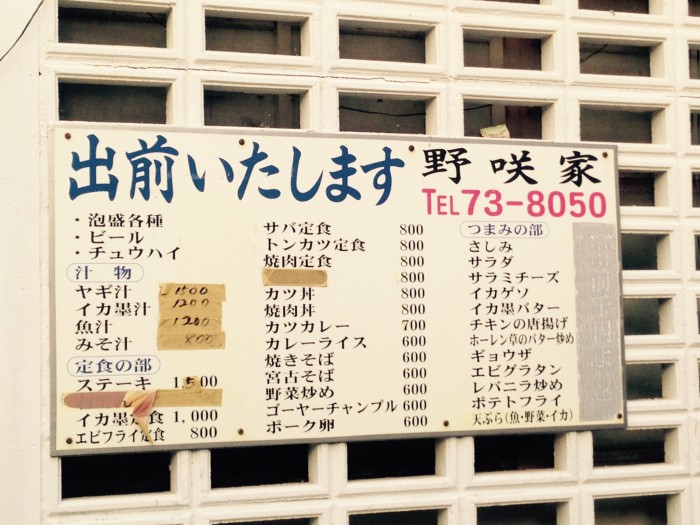 出前いたします
野咲家
TEL73-8050
・泡盛各種
・ビール
・チュウハイ
汁物
ヤギ汁 1500
イカ墨汁 1200
魚汁 1200
みそ汁 800
定食の部
ステーキ 1,500
イカ墨定食 1,000
エビフライ定食 800
サバ定食 800
トンカツ定食 800
焼肉定食 800
800
カツ丼 800
焼肉丼 800
カツカレー 700
カレーライス 600
焼きそば 600
宮古そば 600
野菜炒め 600
ゴーヤーチャンプル 600
ポーク卵 600
つまみの部
さしみ
サラダ
サラミチーズ
イカゲソ
イカ墨バター
チキンの唐揚げ
ホーレン草のバター炒め
ギョウザ
エビグラタン
レバニラ炒め
ポテトフライ
天ぷら(魚・野菜・イカ)